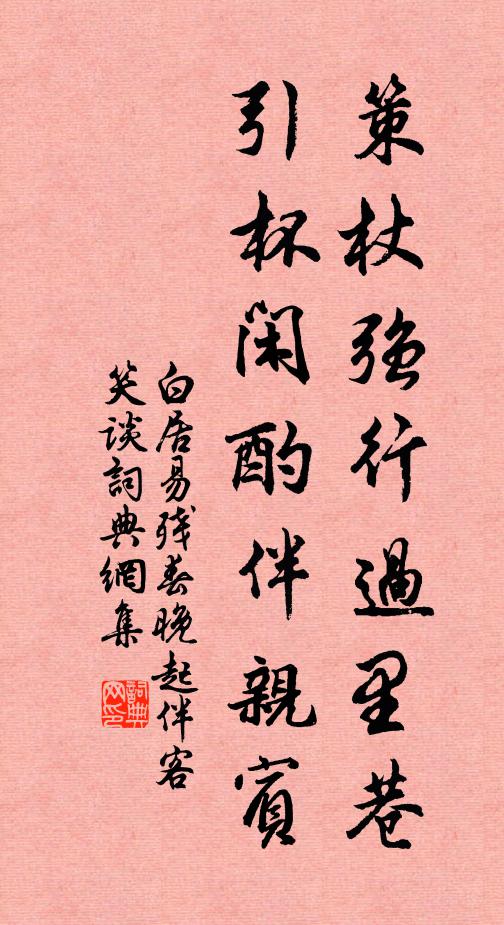 策杖強行過里巷
引杯閑酌伴親賓
白居易殘春晚起伴客
笑談詞典網集
詞典
网印